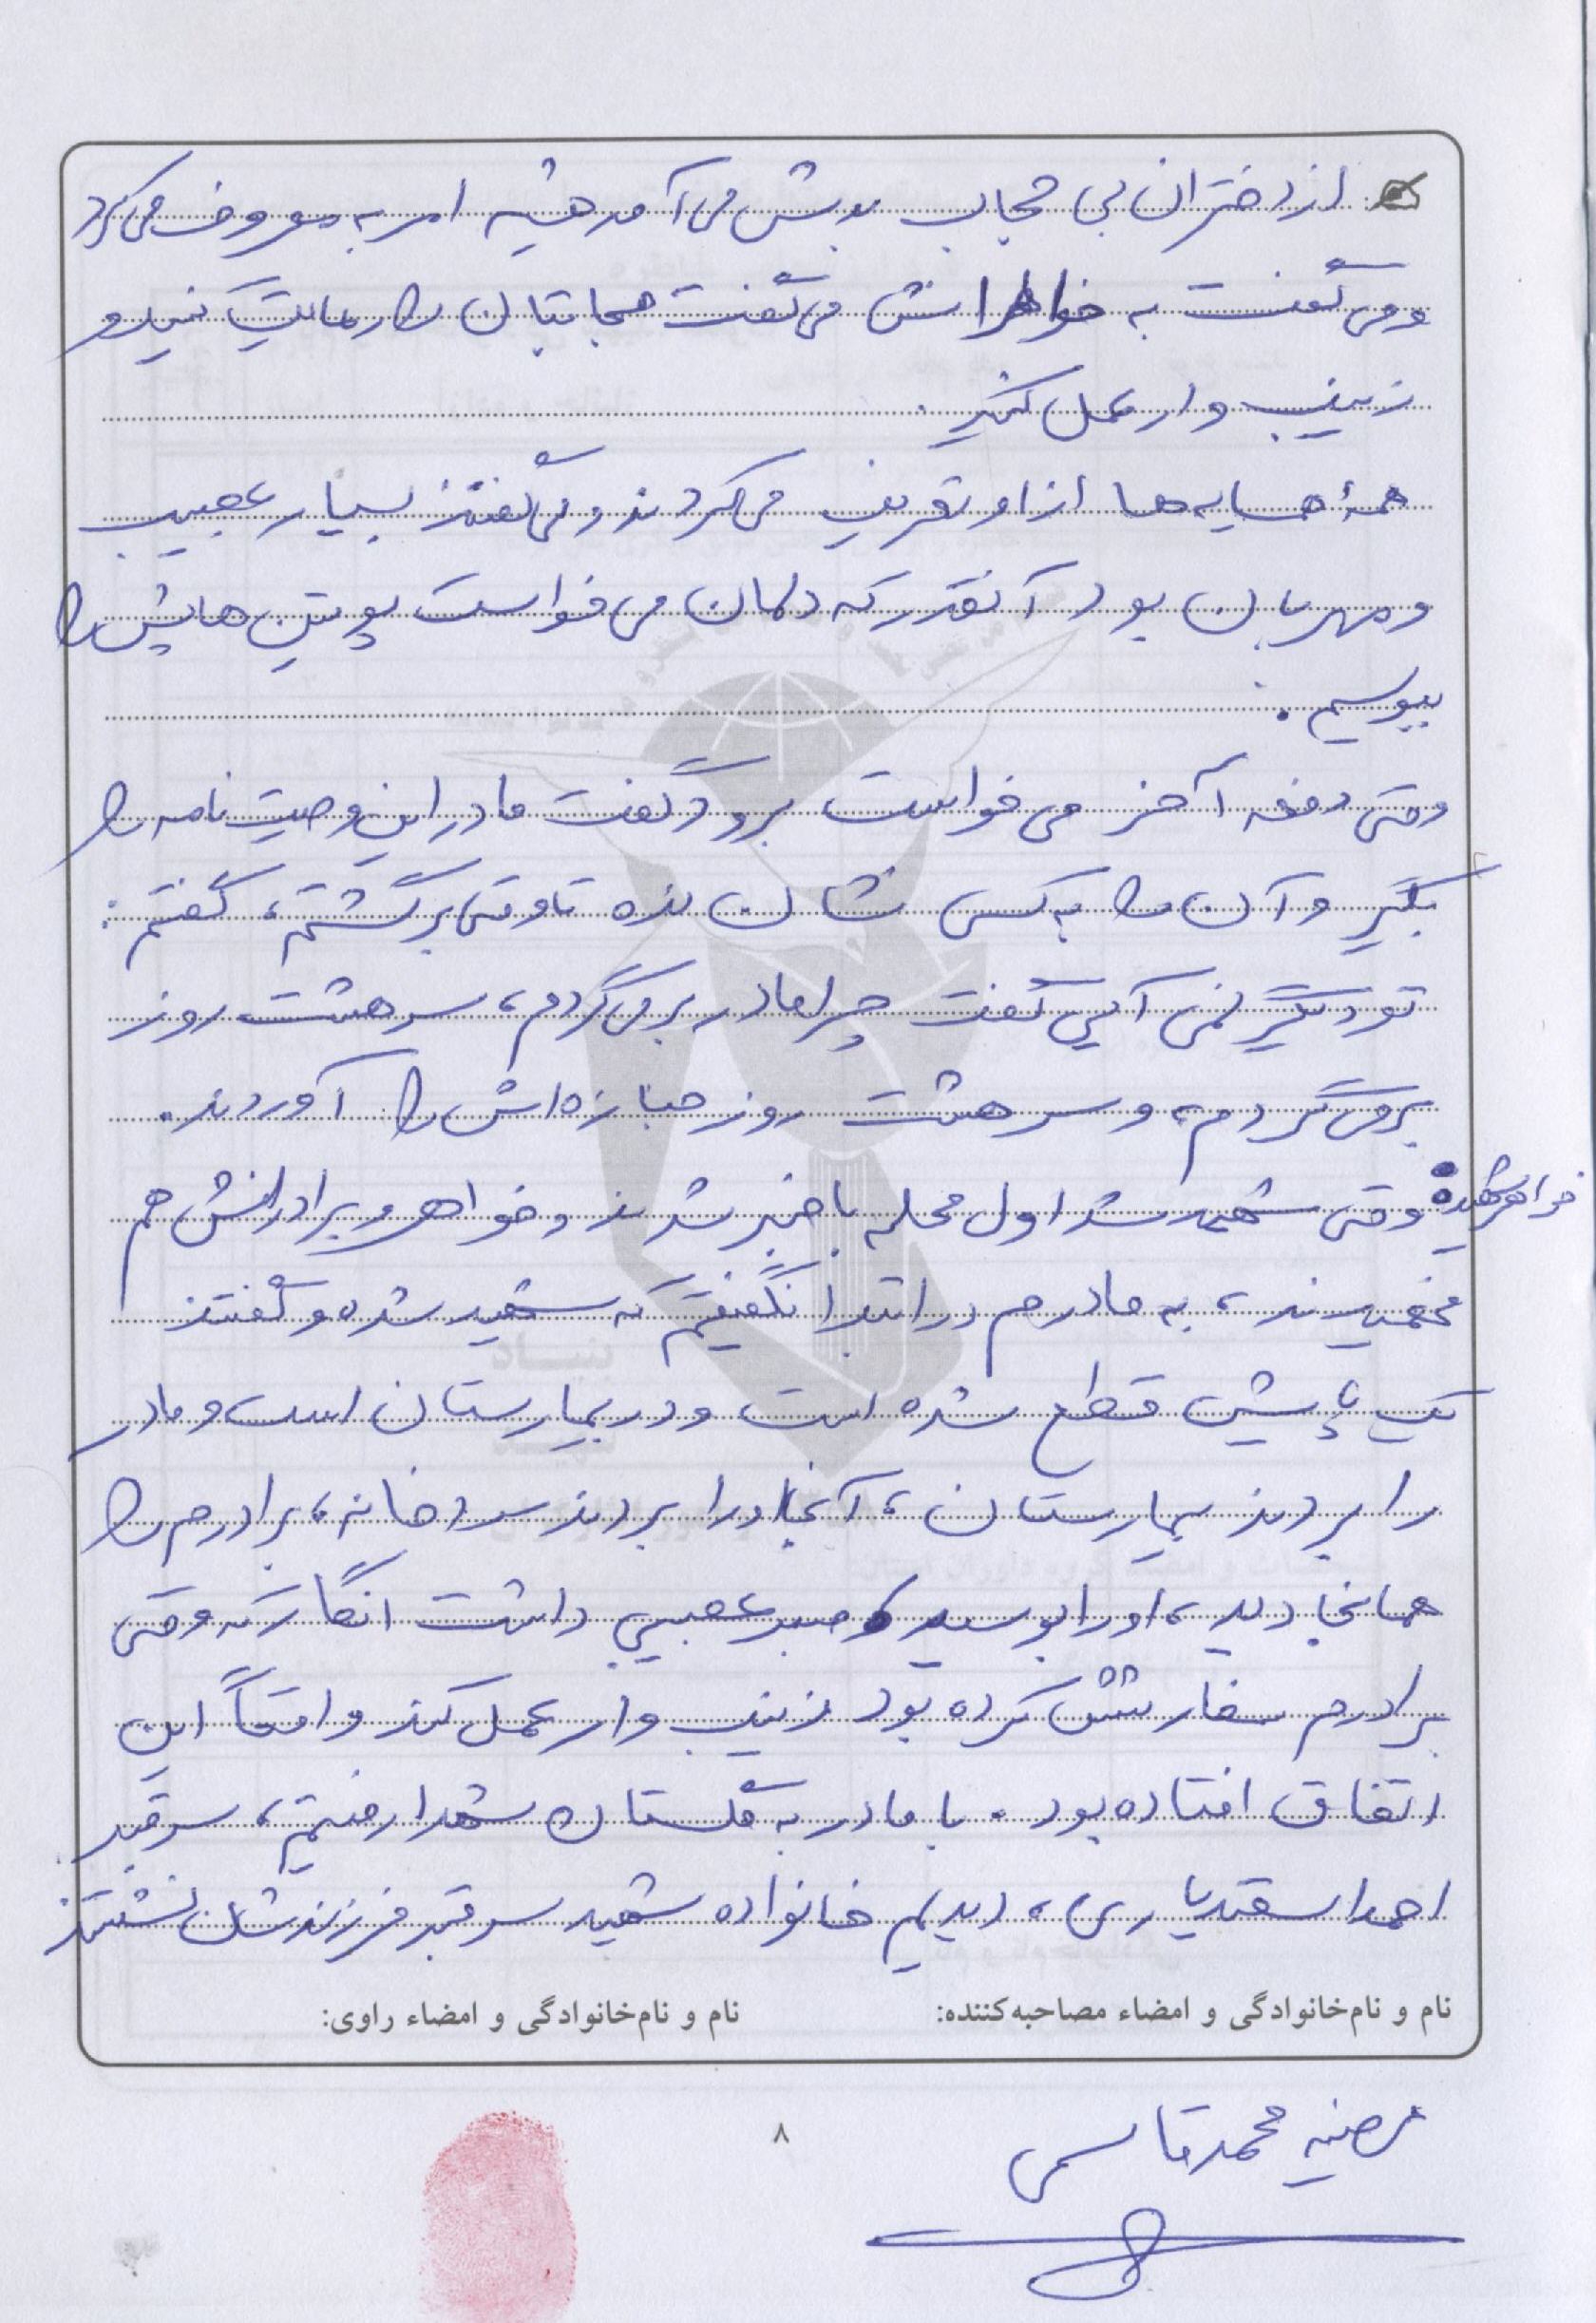 از دختران بی حجاب بدش می‌آمد همیشه امر به معروف می‌کرد
و می‌گفت به خواهرانش می‌گفت حجابتان را رعایت کنید و
زینب وار عمل کنید.
همهٔ همسایه‌ها از او تعریف می‌کردند و می‌گفتند بسیار عجیب
و مهربان بود آنقدر که دلمان می‌خواست پوتین‌هایش را
ببوسیم.
وقتی دفعه آخر می‌خواست برود گفت مادر این وصیت‌نامه را
بگیر و آن را به کسی نشان نده تا وقتی برگشتم، گفتم:
تو دیگر نمی‌آیی گفت چرا مادر برمی‌گردم، سر هشت روز
برمی‌گردم و سر هشت روز جنازه‌اش را آوردند.
خواهر شهید: وقتی شهید شد اول محله باخبر شدند و خواهر و برادرانش هم
فهمیدند، به مادرم در ابتدا نگفتیم که شهید شده و گفتند
یک پایش قطع شده است و در بیمارستان است و مادر
را بردند بیمارستان، آنجا او را بردند سردخانه، برادرم را
همانجا دید، او را بوسید و صبر عجیبی داشت انگار که وقتی
برادرم سفارشش کرده بود زینب وار عمل کند واقعاً این
اتفاق افتاده بود. با مادر به گلستان شهدا رفتیم، سر قبر
احمد اسفندیاری، دیدیم خانواده شهید سر قبر فرزندشان نشستند
نام و نام‌خانوادگی و امضاء مصاحبه‌کننده: نام و نام‌خانوادگی و امضاء راوی:
مرضیه محمدقاسمی
۸